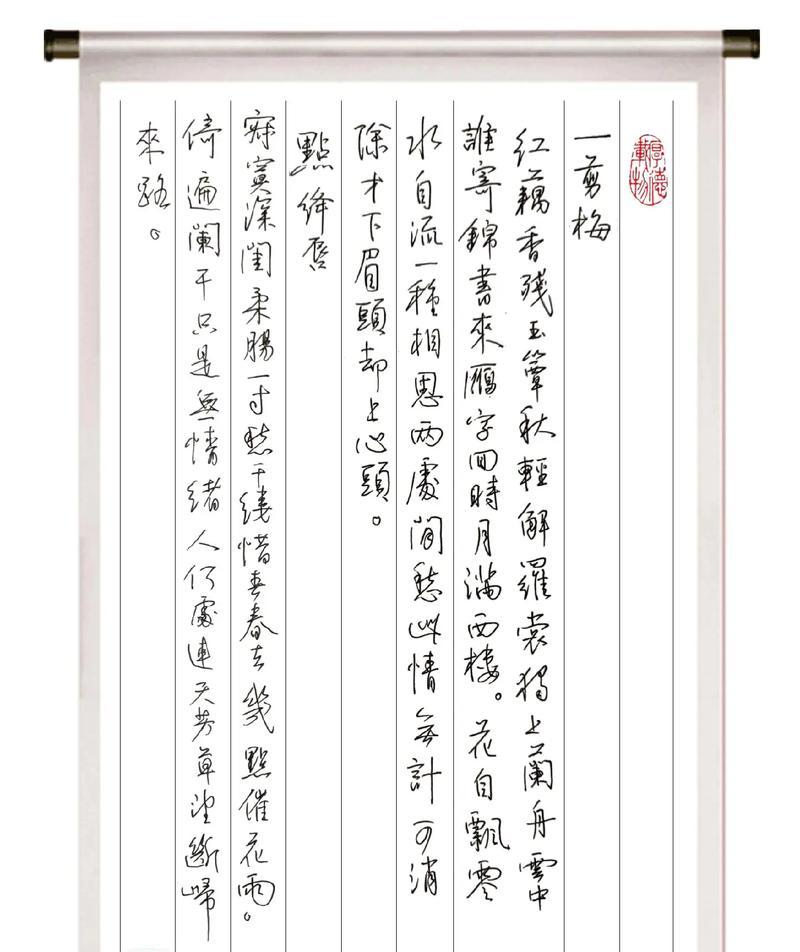 厚德載物
一剪梅
红藕香殘玉簟秋輕解羅裳獨上蘭舟雲中
誰寄錦書來鴈字囬時月滿西樓。花自飄零
水自流一種相思两處閒愁此情無計可消
除才下眉頭却上心頭。
點絳唇
寂寞深閨柔腸一寸愁千縷惜春春去幾點催花雨。
倚遍闌干只是無情緒人何處連天芳草望斷歸
來路。